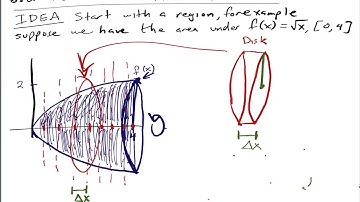 IDEA Start with a region, for example
suppose we have the area under f(x) = √x, [0, 4]
Disk
f(x)
2
4
Δx
Δx